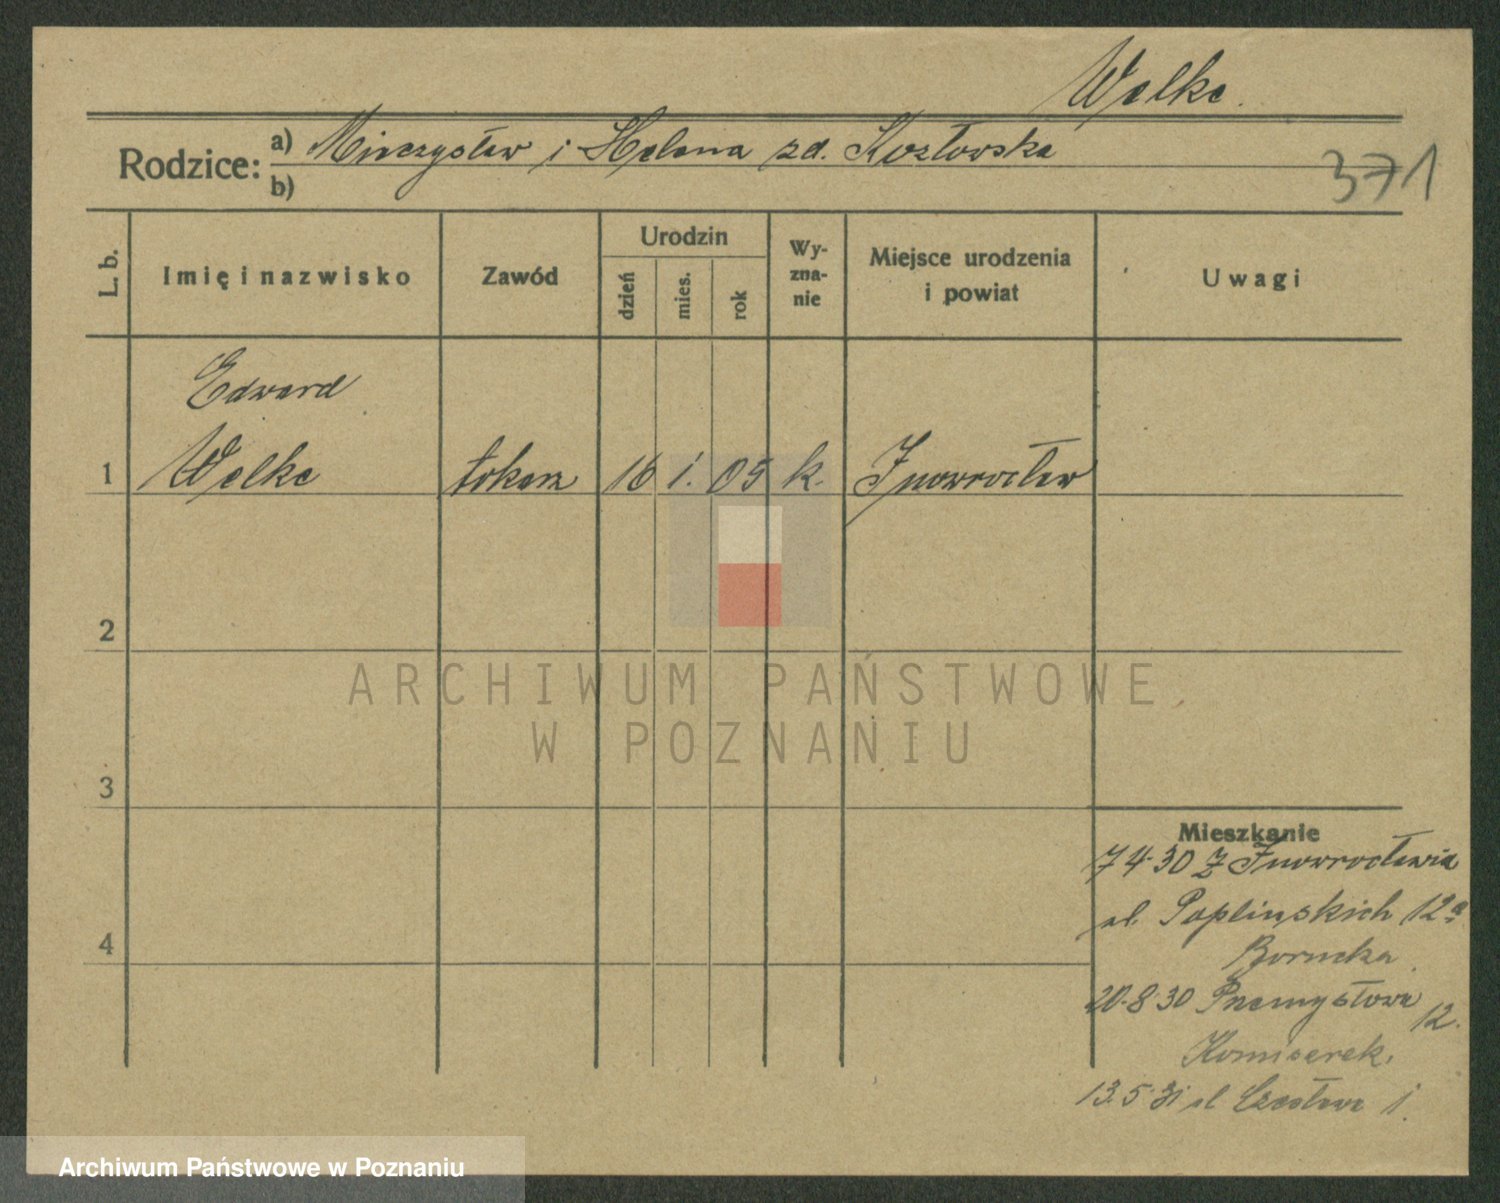 Welke.
Rodzice: a) Mieczysław i Helena zd. Kozłowska
b)
371
L. b.
Imię i nazwisko
Zawód
Urodzin
dzień
mies.
rok
Wy-
zna-
nie
Miejsce urodzenia
i powiat
Uwagi
Edward
1 Welke tokarz 16 1. 05 k. Inowrocław
2
3
4
ARCHIWUM PAŃSTWOWE
W POZNANIU
Mieszkanie
7 4 30 z Inowrocławia
ul. Poplińskich 12a
Borucka
20-8-30 Przemysłowa
12.
Komiserek.
13.5.31 ul Czesława 1.
Archiwum Państwowe w Poznaniu